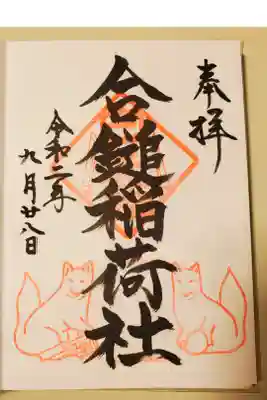 奉拝
合鎚稲荷社
令和二年
九月廿八日